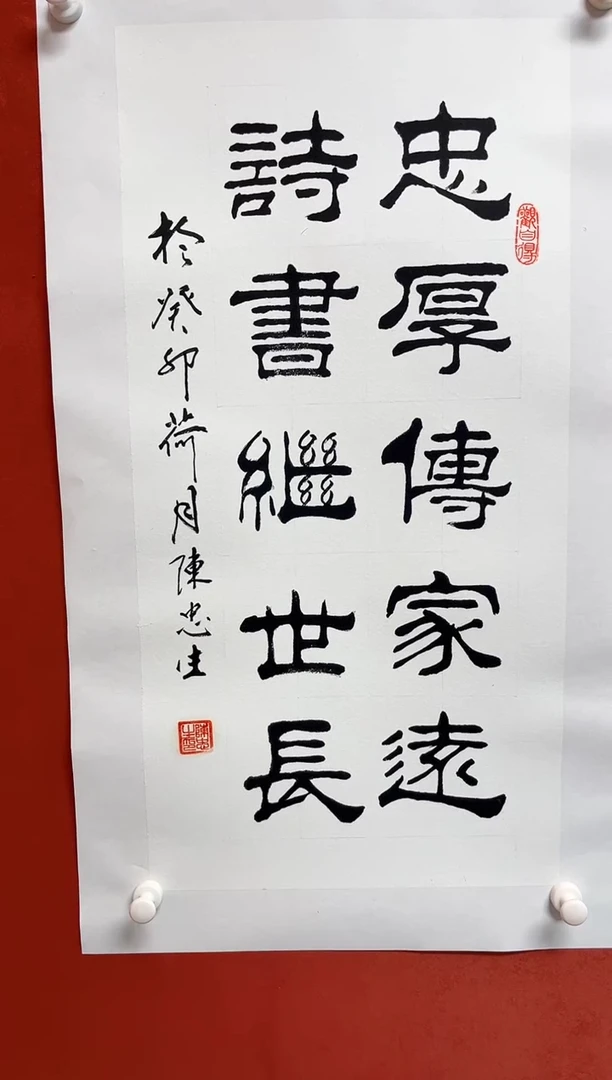 忠厚傳家遠
詩書繼世長
於癸卯荷月陳忠生
觀自得